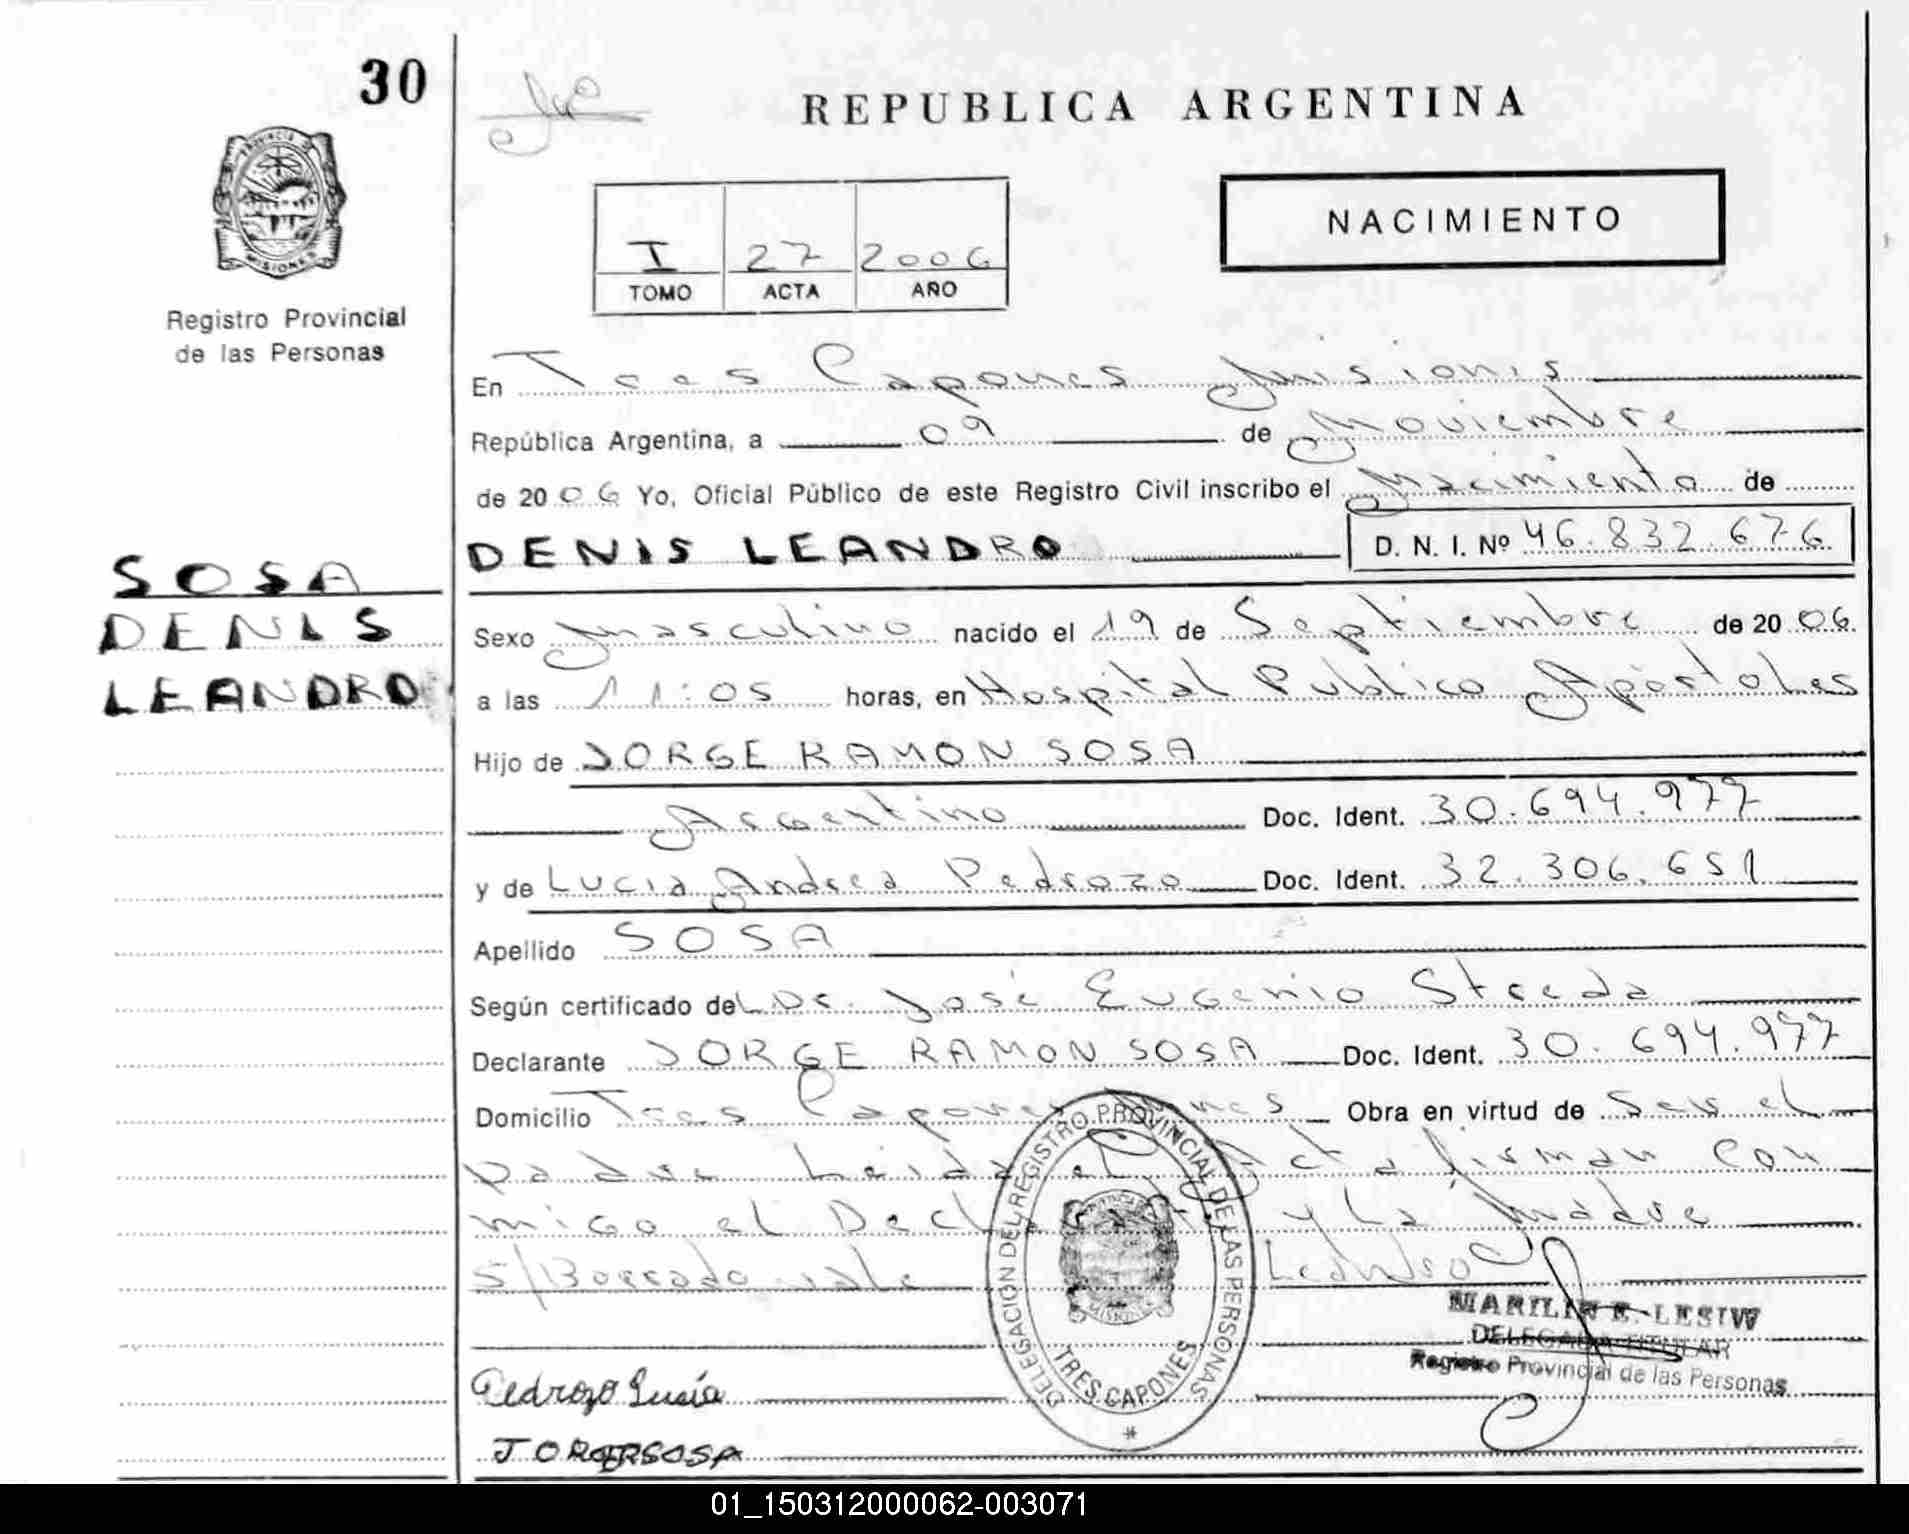 30
REPUBLICA ARGENTINA
PROVINCIA DE
MISIONES
Registro Provincial
de las Personas
NACIMIENTO
I 27 2006
TOMO ACTA AÑO
En Tres Capones Misiones
República Argentina, a 09 de Noviembre
de 2006 Yo, Oficial Público de este Registro Civil inscribo el Nacimiento de
DENIS LEANDRO D. N. I. Nº 46.832.676
SOSA
DENIS
LEANDRO
Sexo Masculino nacido el 19 de Septiembre de 2006
a las 11:05 horas, en Hospital Publico Apóstoles
Hijo de JORGE RAMON SOSA
Argentino Doc. Ident. 30.694.977
y de Lucia Andrea Pedrozo Doc. Ident. 32.306.651
Apellido SOSA
Según certificado del Dr. José Eugenio Streda
Declarante JORGE RAMON SOSA Doc. Ident. 30.694.977
Domicilio Tres Capones Mnes Obra en virtud de Ser el
padre Leida el Acta firman con
migo el Declarante y La Madre
S/Borrado vale Leandro
DELEGACION DEL REGISTRO PROVINCIAL DE LAS PERSONAS
TRES CAPONES
MARILIN E. LESIW
DELEGADA TITULAR
Registro Provincial de las Personas
Pedrozo Lucía
JORGERSOSA
01_150312000062-003071